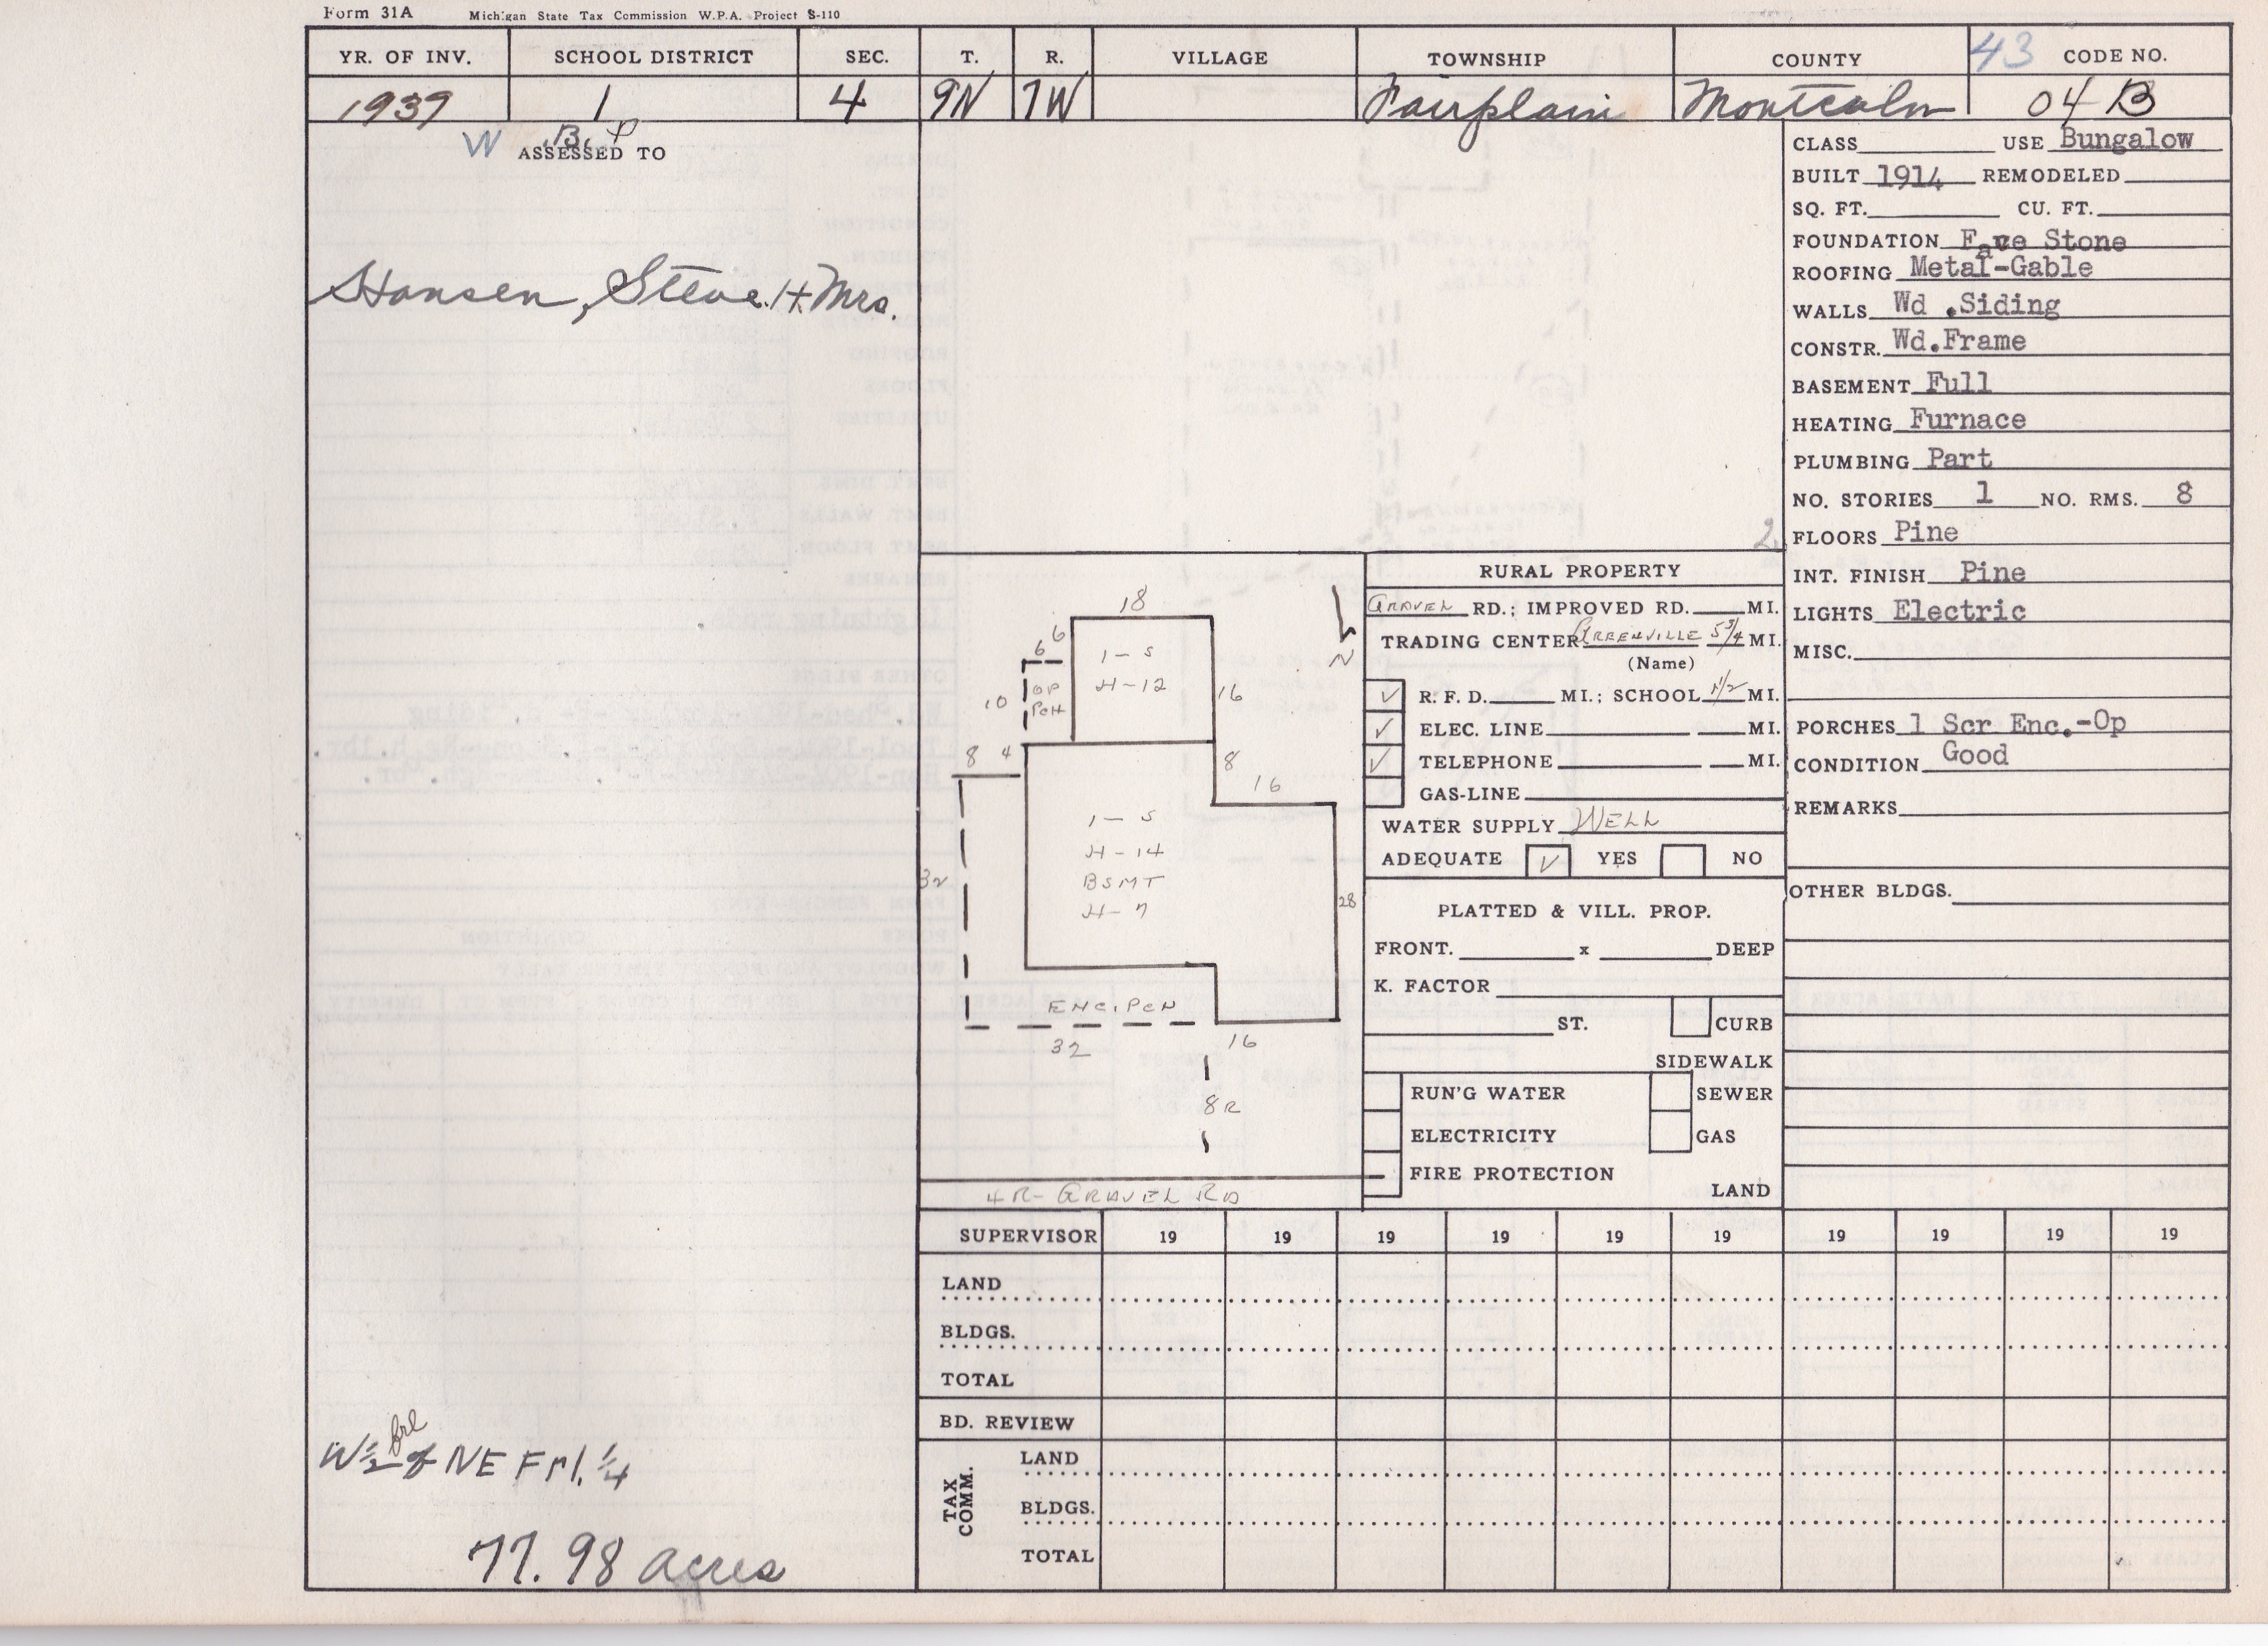 Form 31A Michigan State Tax Commission W.P.A. Project S-110
YR. OF INV. SCHOOL DISTRICT SEC. T. R. VILLAGE TOWNSHIP COUNTY 43 CODE NO.
1939 1 4 9N 7W Fairplain Montcalm 04 B
W B. P
ASSESSED TO
Hansen, Steve H + Mrs.
W 1/2 frl of NE Frl. 1/4
77.98 acres
CLASS USE Bungalow
BUILT 1914 REMODELED
SQ. FT. CU. FT.
FOUNDATION Face Stone
ROOFING Metal-Gable
WALLS Wd .Siding
CONSTR. Wd.Frame
BASEMENT Full
HEATING Furnace
PLUMBING Part
NO. STORIES 1 NO. RMS. 8
2
FLOORS Pine
INT. FINISH Pine
LIGHTS Electric
MISC.
PORCHES 1 Scr Enc.-Op
CONDITION Good
REMARKS
OTHER BLDGS.
18
6
6
1-S
H-12
OP
PCH
10
16
N
8 4
8
16
1-S
H-14
BSMT
H-7
32
28
ENC. PCH
32
16
8R
4R- GRAVEL RD
RURAL PROPERTY
GRAVEL RD.; IMPROVED RD. MI.
TRADING CENTER GREENVILLE 5 3/4 MI.
(Name)
✓ R.F.D. MI.; SCHOOL 1 1/2 MI.
✓ ELEC. LINE MI.
✓ TELEPHONE MI.
GAS-LINE
WATER SUPPLY WELL
ADEQUATE ✓ YES NO
PLATTED & VILL. PROP.
FRONT. x DEEP
K. FACTOR
ST. CURB
SIDEWALK
RUN'G WATER SEWER
ELECTRICITY GAS
FIRE PROTECTION
LAND
SUPERVISOR 19 19 19 19 19 19 19 19 19 19
LAND
BLDGS.
TOTAL
BD. REVIEW
TAX COMM.
LAND
BLDGS.
TOTAL